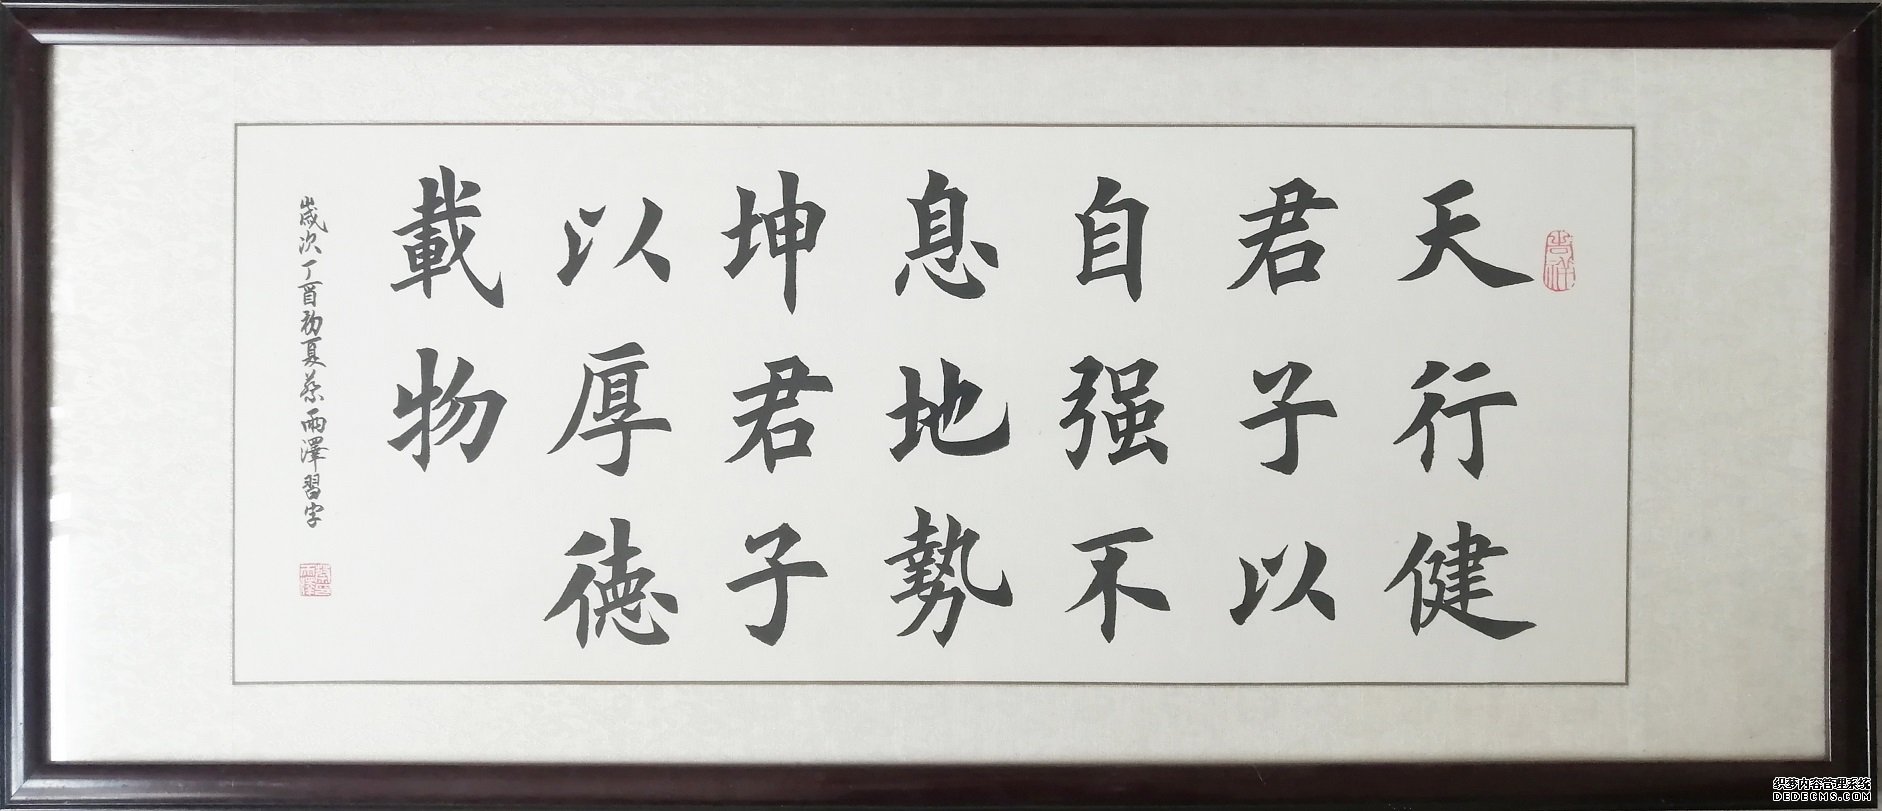 天行健
君子以
自强不
息地勢
坤君子
以厚德
載物
歲次丁酉初夏蔡雨澤習字
织梦内容管理系统
DEDECMS.COM